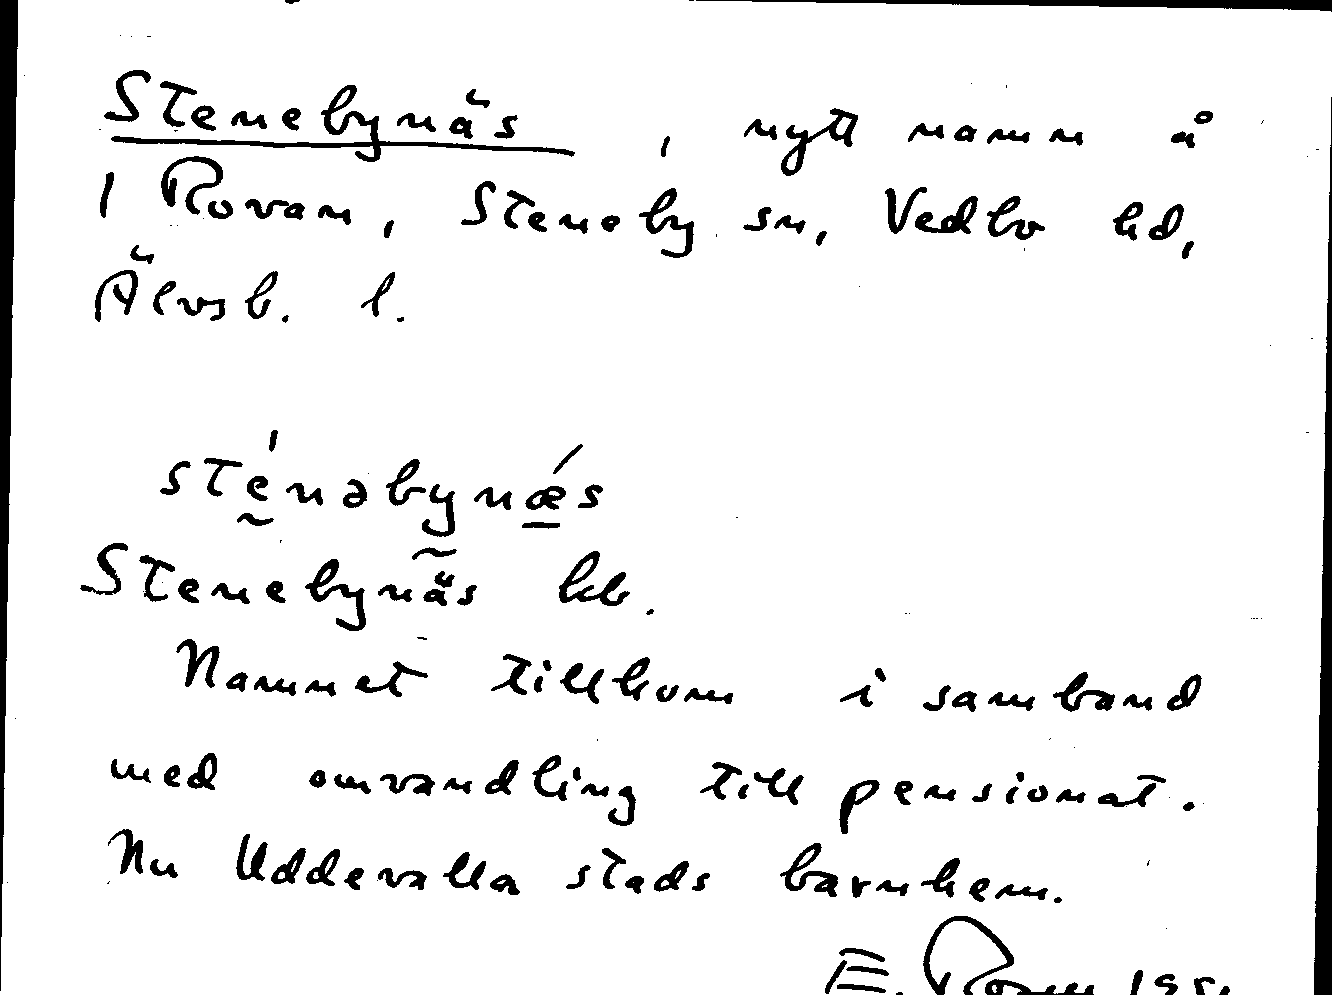 Stenebynäs, nytt namn å
1 Rovan, Steneby sn, Vedbo hd,
Älvsb. l.
sténəbynǽs
Stenebynäs kb.
Namnet tillkom i samband
med omvandling till pensionat.
Nu Uddevalla stads barnhem.
E.